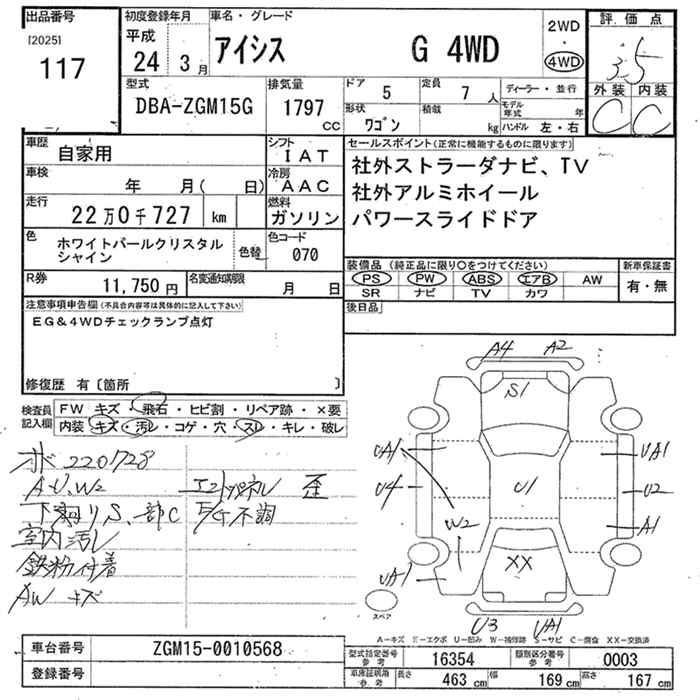 出品番号
[2025]
117
初度登録年月
平成
24年 3月
車名・グレード
アイシス G 4WD
2WD
・
4WD
評価点
3.5
外装 内装
C C
型式
DBA-ZGM15G
排気量
1797
CC
ドア 5
定員 7人
形状 ワゴン
積載 kg
ディーラー・並行
モデル年式 年
ハンドル 左・右
車歴 自家用
シフト IAT
車検 年 月( 日)
冷房 AAC
走行 22万0千727 km
燃料 ガソリン
色 ホワイトパールクリスタル
シャイン
色替
色コード 070
R券 11,750円
名変通知期限 月 日
セールスポイント(正常に機能するものに限ります)
社外ストラーダナビ、TV
社外アルミホイール
パワースライドドア
装備品(純正品に限り○をつけてください)
PS PW ABS エアB AW
SR ナビ TV カワ
新車保証書
有・無
後日品
注意事項申告欄(不具合内容等は具体的に記入して下さい)
EG&4WDチェックランプ点灯
修復歴 有〔箇所 〕
検査員
記入欄
FW キズ・飛石・ヒビ割・リペア跡・×要
内装 キズ・汚レ・コゲ・穴・スレ・キレ・破レ
オド 220728
A・U、W2
下廻リS、一部C
室内汚レ
鉄粉付着
AW キズ
エンドパネル 歪
E/G不調
A4 A2
S1
UA1
U4
W2
UA1
U1
XX
UA1
U2
A1
U3 UA1
スペア
A-キズ E-エクボ U-凹み W-補修跡 S-サビ C-腐食 XX-交換済
車台番号 ZGM15-0010568
登録番号
型式指定番号
参考
16354
類別区分番号
参考
0003
車庫証明用
参考
長さ 463 cm
幅 169 cm
高さ 167 cm